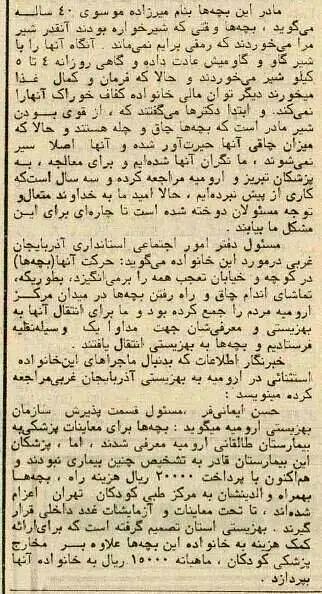 مادر این بچه‌ها بنام میرزاده موسوی ۴۰ ساله
می‌گوید ، بچه‌ها وقتی که شیرخواره بودند آنقدر شیر
مرا می‌خوردند که رمقی برایم نمی‌ماند . آنگاه آنها را با
شیر گاو و گاومیش عادت داده و گاهی روزانه ۴ تا ۵
کیلو شیر می‌خوردند و حالا که فرمان و کمال غذا
میخورند دیگر توان مالی خانواده کفاف خوراک آنهارا
نمی‌کند. و ابتدا دکترها می‌گفتند که ، از قوی بودن
شیر مادر است که بچه‌ها چاق و چله هستند و حالا که
میزان چاقی آنها حیرت‌آور شده و آنها اصلا سیر
نمی‌شوند ، ما نگران آنها شده‌ایم و برای معالجه ، به
پزشکان تبریز و ارومیه مراجعه کرده و سه سال است‌که
کاری از پیش نبرده‌ایم ، حالا امید ما به خداوند متعال‌و
توجه مسئولان دوخته شده است تا چاره‌ای برای این
مشکل ما بیابند .
مسئول دفتر امور اجتماعی استانداری آذربایجان
غربی درمورد این خانواده می‌گوید: حرکت آنها(بچه‌ها)
در کوچه و خیابان تعجب همه را برمی‌انگیزد، بطوریکه،
تماشای اندام چاق و راه رفتن بچه‌ها در میدان مرکز
ارومیه مردم را جمع کرده بود و ما برای انتقال آنها به
بهزیستی و معرفی‌شان جهت مداوا یک وسیله‌نقلیه
فرستادیم و بچه‌ها به بهزیستی انتقال یافتند .
خبرنگار اطلاعات که بدنبال ماجراهای این‌خانواده
استثنائی در ارومیه به بهزیستی آذربایجان غربی‌مراجعه
کرده مینویسد :
حسن ایمانی‌فر ،مسئول قسمت پذیرش سازمان
بهزیستی ارومیه میگوید : بچه‌ها برای معاینات پزشکی‌به
بیمارستان طالقانی ارومیه معرفی شدند ، اما ، پزشکان
این بیمارستان قادر به تشخیص چنین بیماری نبودند و
هم‌اکنون با پرداخت ۲۰۰۰۰ ریال هزینه راه ، بچه‌ها
بهمراه والدینشان به مرکز طبی کودکان تهران اعزام
شده‌اند ، تا تحت معاینات و آزمایشات غدد داخلی قرار
گیرند . بهزیستی استان تصمیم گرفته است که برای‌ارائه
کمک هزینه به خانواده این بچه‌ها علاوه بر مخارج
پزشکی کودکان ، ماهیانه ۱۵۰۰۰ ریال به خانواده آنها
بپردازد .